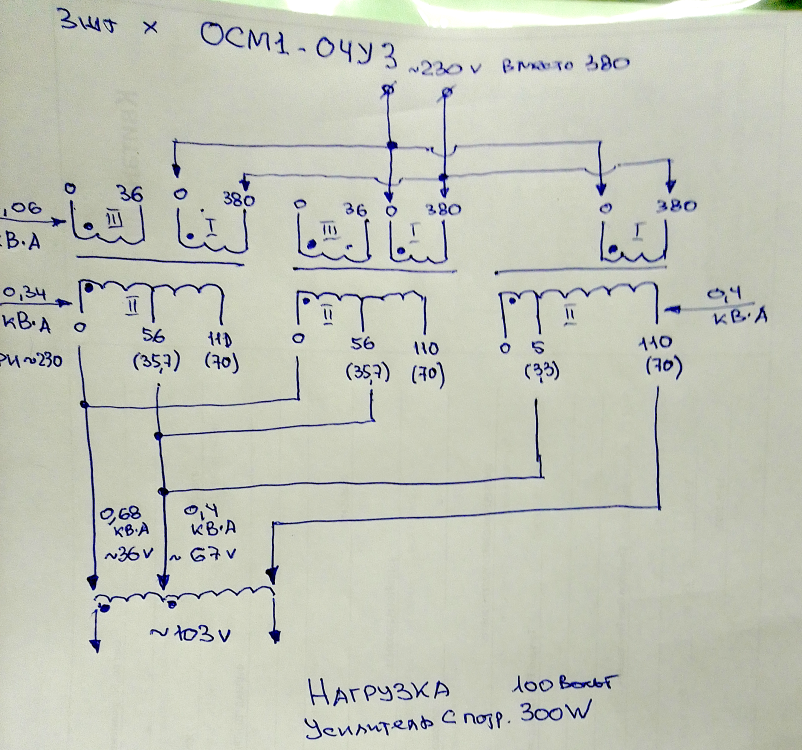 3шт × ОСМ1-04У3
~230 v вместо 380
0 36 0 380 0 36 0 380 0 380
,06
КВ·А
III I III I I
0,34
КВ·А
II II II
0,4
КВ·А
0 56 110 0 56 110 0 5 110
РИ ~230 (35,7) (70) (35,7) (70) (3,3) (70)
0,68 0,4
КВ·А КВ·А
~36 v ~ 67 v
~103 v
НАГРУЗКА 100 Вольт
Усилитель с потр. 300W